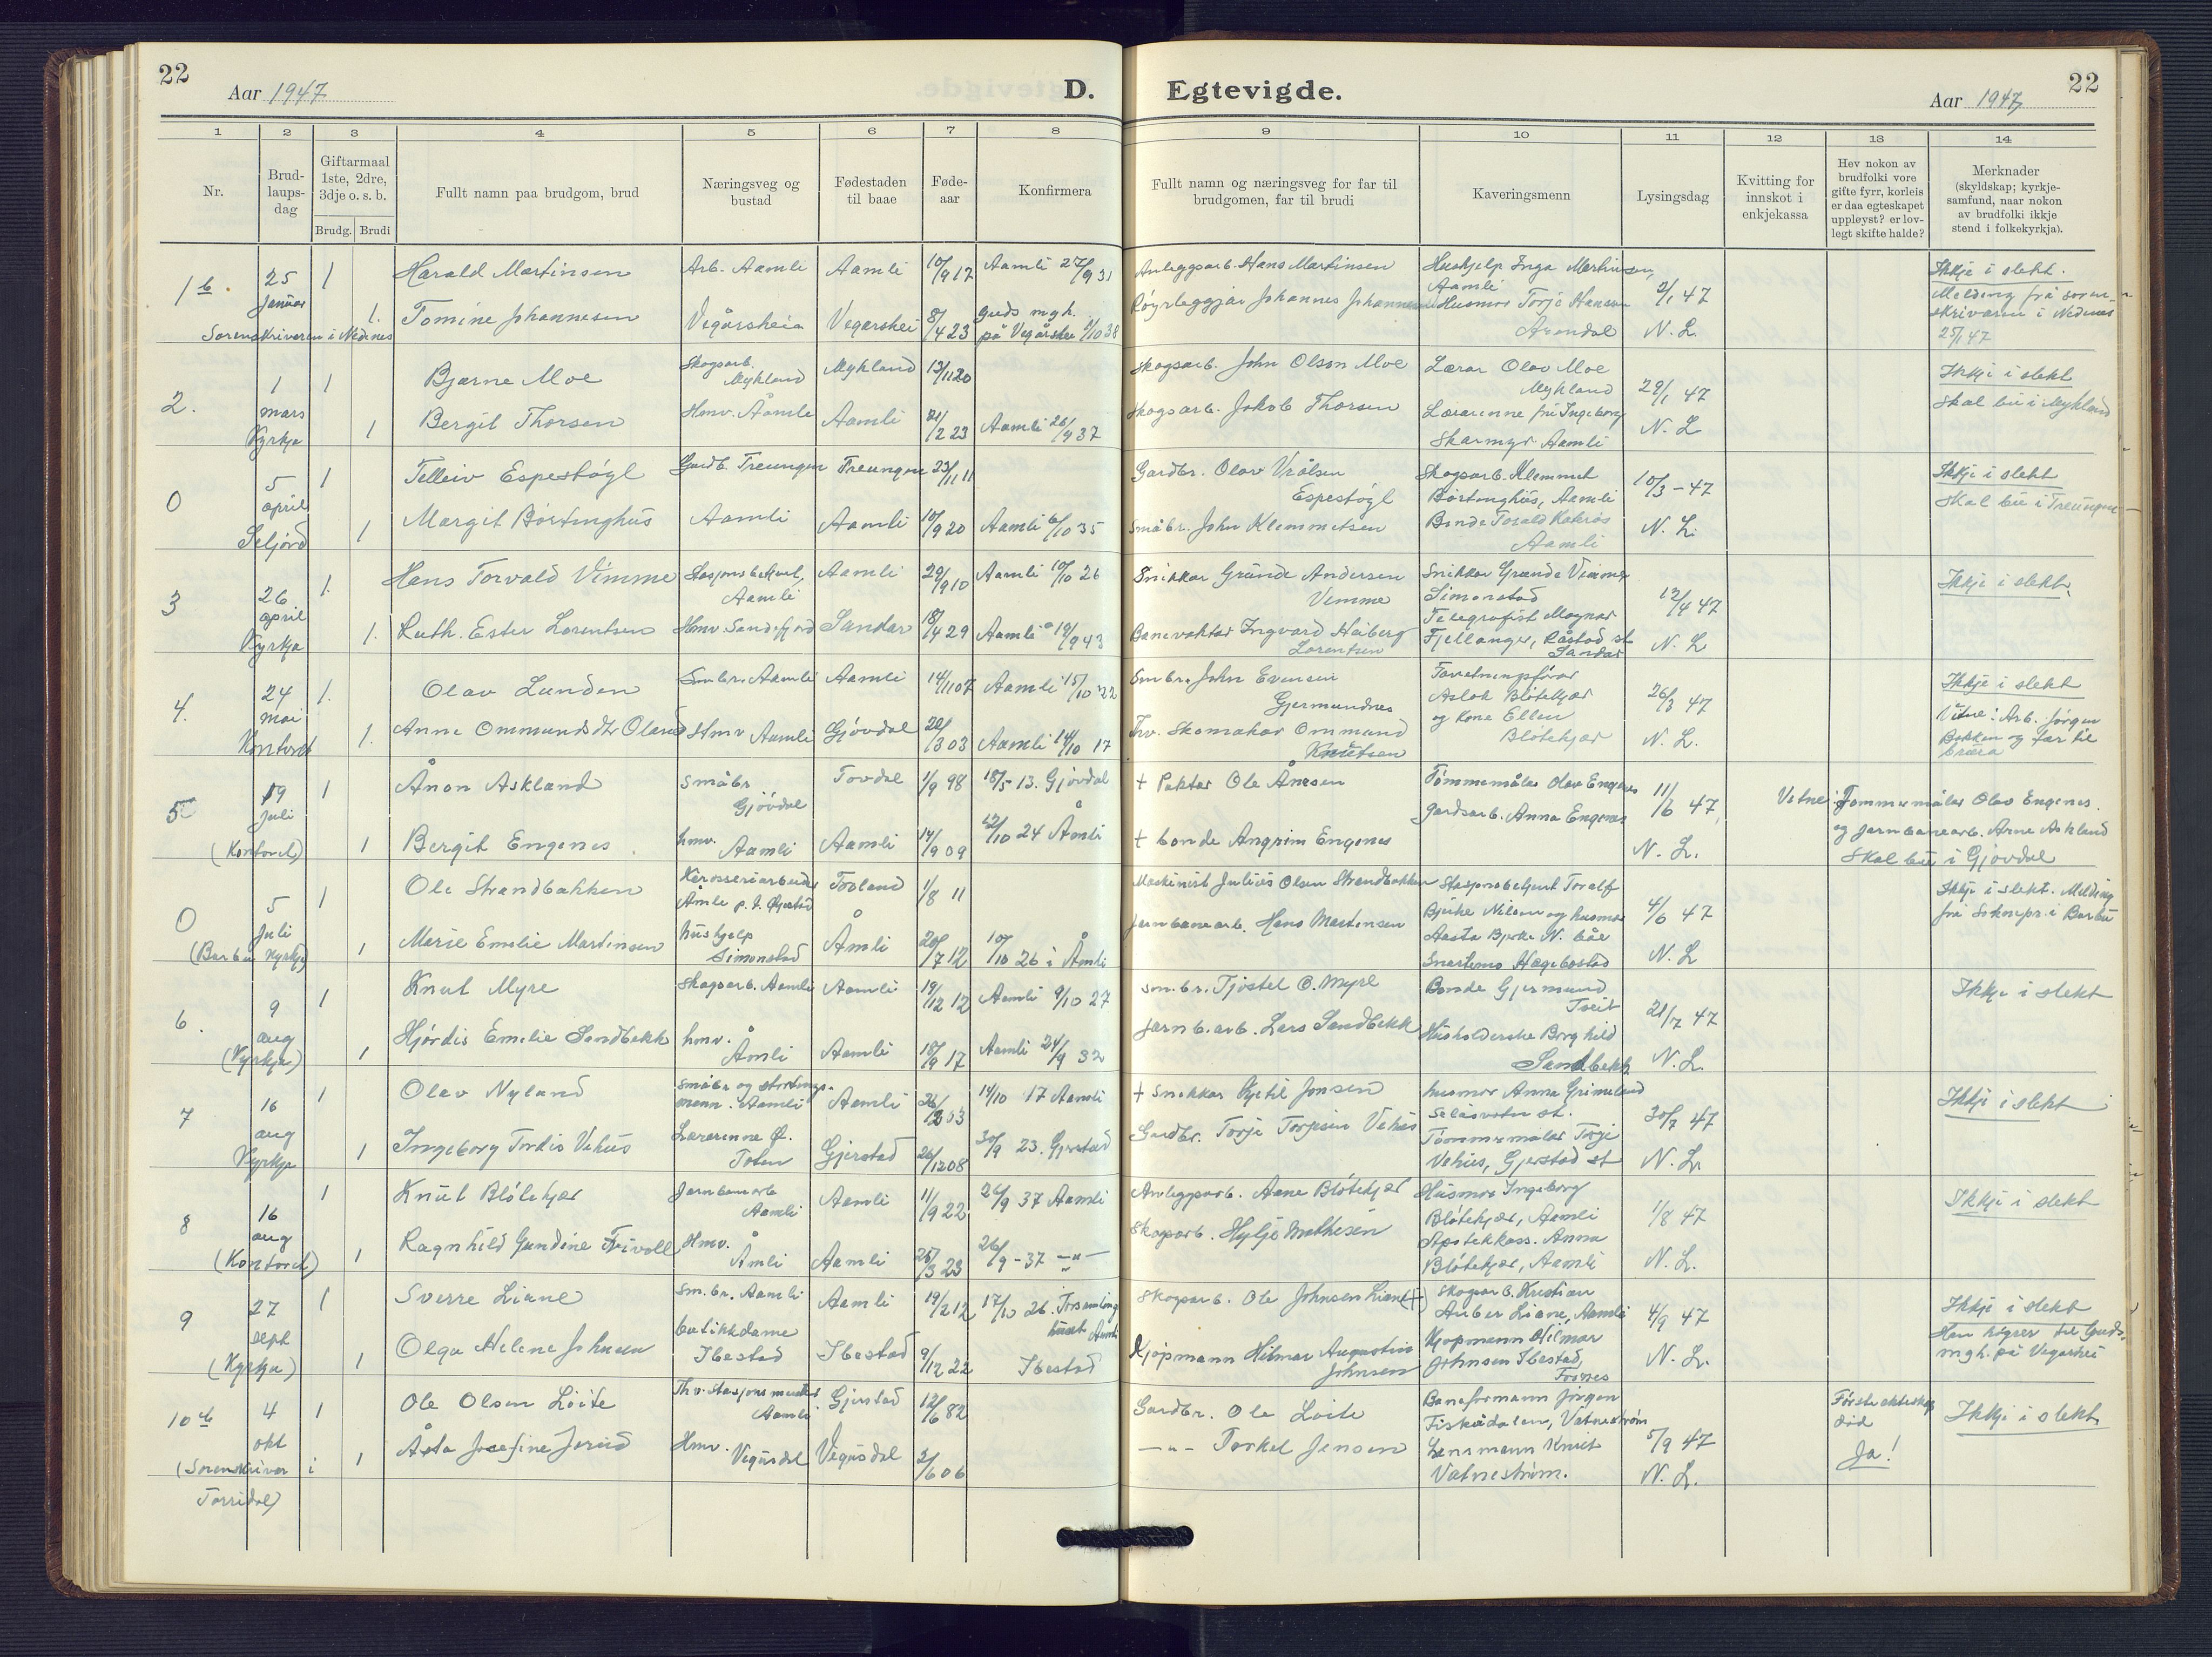 22
Aar 1947
D.
Egtevigde.
22
Aar 1947
1 2 3 4 5 6 7 8 9 10 11 12 13 14
Nr.
Brud-
laups-
dag
Giftarmaal
1ste, 2dre,
3dje o. s. b.
Brudg. Brudi
Fullt namn paa brudgom, brud
Næringsveg og
bustad
Fødestaden
til baae
Føde-
aar
Konfirmera
Fullt namn og næringsveg for far til
brudgomen, far til brudi
Kaveringsmenn
Lysingsdag
Kvitting for
innskot i
enkjekassa
Hev nokon av
brudfolki vore
gifte fyrr, korleis
er daa egteskapet
uppløyst? er lov-
legt skifte halde?
Merknader
(skyldskap; kyrkje-
samfund, naar nokon
av brudfolki ikkje
stend i folkekyrkja).
1 b.
25
Januar
Sorenskriveren i Nedenes
1
Harald Martinsen
Arb. Aamli
Aamli
10/9 17
Aamli 27/9 31
Anleggsarb. Hans Martinsen
Hushjelp Inga Martinsen,
Aamli
2/1 47
N. L.
Ikkje i slekt.
Melding frå soren-
skrivaren i Nedenes
25/1 47
1.
Tomine Johannesen
Vegårsheia
Vegarshei
8/4 23
Guds mgh.
på Vegårshei 2/10 38
Røyrleggjar Johannes Johannesen
Husmor Torje Hansen
Arendal
2.
1
mars
Kyrkja
1
Bjarne Moe
Skogsarb.
Mykland
Mykland
13/11 20
Skogsarb. John Olson Moe
Lærar Olav Moe
Mykland
29/1 47
N. L
Ikkje i slekt
Skal bu i Mykland
1
Bergit Thorsen
Hmv. Åamli
Aamli
21/2 23
Aamli 26/9 37
Skogsarb. Jakob Thorsen
Lærarinne fru Ingeborg
Skarmyr Aamli
0
5
april
Seljord
1
Telleiv Espestøyl
Gardb. Treungen
Treungen
23/11 11
Gardbr. Olav Vrålsen
Espestøyl
Skogsarb. Klemmet
Børtenghus, Aamli
10/3 - 47
N. L.
Ikkje i slekt
Skal bu i Treungen
1
Margit Børtenghus
Aamli
Aamli
10/9 20
Aamli 6/10 35
Småbr. John Klemmetsen
Bonde Torald Kateraas
Aamli
3
26
april
Kyrkja
1.
Hans Torvald Vimme
Stasjonsbetjent,
Aamli
Aamli
29/9 10
Aamli 10/10 26
Snikkar Grunde Andersen
Vimme
Snikkar Grunde Vimme
Simonstad
12/4 47
N. L
Ikkje i slekt.
1.
Ruth. Ester Lorentsen
Hmv. Sandefjord
Sandar
18/4 29
Aamli 19/9 43
Banevaktar Ingvard Heiberg
Lorentsen
Telegrafist Magnar
Fjellanger, Råstad st
Sandar
4.
24
mai
Kontoret
1.
Olav Lunden
Smbr. Aamli
Aamli
14/11 07
Aamli 15/10 22
Smbr. John Evensen
Gjermundnes
Forretningsførar
Aslak Bløtekjær
og Kone Ellen
Bløtekjær
26/3 47
N. L.
Ikkje i slekt
Vitne: Arb. Jørgen
Bakken og far til
brura
1.
Anne Ommundsdtr Oland
Hmv Aamli
Gjøvdal
20/3 03
Aamli 14/10 17
Fhv. Skomakar Ommund
Knutsen
5
19
Juli
(Kontoret)
1
Ånon Askland
Småbr
Gjøvdal
Tovdal
1/9 98
18/5 - 13. Gjøvdal
+ Paktar Ole Ånesen
Tømmermåler Olav Engenes
Gardsarb. Anna Engenes
11/6 47
N. L.
Vitne: Tømmermåler Olav Engenes.
og jarnbanearb. Arne Askland
Skal bu i Gjøvdal
1
Bergit Engenes
hmv.
Aamli
Aamli
14/9 09
12/10 24 Åmli
+ bonde Angrim Engenes
0
5
Juli
(Barbu Kyrkje)
1
Ole Strandbakken
Karosseriarbeider
Åmli p. t. Øyestad
Froland
1/8 11
Maskinist Julius Olsen Strandbakken
Stasjonsbetjent Toralf
Bjerke Nilsen og husmor
Aasta Bjerke N. båe
Snartemo Hægebostad
4/6 47
N. L
Ikkje i slekt. Melding
frå Soknepr. i Barbu
1
Marie Emelie Martinsen
hushjelp
Simonstad
Åmli
20/7 12
10/10 26 i Åmli
Jernbanearb. Hans Martinsen
6.
9
aug
(Kyrkje)
1
Knut Myre
Skogsarb. Aamli
Aamli
19/12 12
Aamli 9/10 27
Sm.br. Tjøstel O. Myre
Bonde Gjermund
Tveit
21/7 47
N. L.
Ikkje i slekt
1
Hjørdis Emelie Sandbekk
hmv.
Åmli
Aamli
18/9 17
Aamli 24/9 32
Jarnb.arb. Lars Sandbekk
Husholderske Borghild
Sandbekk
7
16
aug
Kyrkja
1
Olav Nyland
Småbr og stortings-
mann. Aamli
Aamli
26/12 03
14/10 17 Aamli
+ Snikkar Kjetil Jonsen
husmor Anna Grimeland
Selåsvatn st.
30/7 47
N. L.
Ikkje i slekt
1
Ingeborg Tordis Vehus
Lærerinne Ø.
Toten
Gjerstad
26/12 08
30/9 23. Gjerstad
Gardbr. Torje Torjesen Vehus
Tømmermåler Torje
Vehus, Gjerstad st
8
16
aug
(Kontoret)
1
Knut Bløtekjær
Jarnbanearb
Aamli
Aamli
11/9 22
26/9 37 Aamli
Anleggsarb. Aane Bløtekjær
Husmor Ingeborg
Bløtekjær, Aamli
1/8 47
N. L.
Ikkje i slekt
1
Ragnhild Gundine Frivoll
Hmv.
Åmli
Aamli
25/3 23
26/9 - 37 —"—
Skogsarb. Hylje Mathesen
Apotekkass. Anna
Bløtekjær, Aamli
9
27
sept
(Kyrkja)
1
Sverre Liane
Sm.br. Aamli
Aamli
19/2 12
17/10 26. Forsamlings
huset Aamli
Skogsarb. Ole Johnsen Liane (+)
Skogsarb. Kristian
Auber Liane, Aamli
4/9 47
N. L.
Ikkje i slekt
Han høyrer til Guds
mgh. på Vegarshei
1
Olga Helene Johnsen
butikkdame
Ibestad
Ibestad
9/12 22
Ibestad
Kjøpmann Hilmar Augustius
Johnsen
Kjøpmann Hilmar
Johnsen Ibestad,
10 b
4
okt
(Sorenskriver i
Torridal)
1
Ole Olsen Loite
Fhv. Stasjonsmester
Aamli
Gjerstad
12/6 82
Gardbr. Ole Loite
Baneformann Jørgen
Fiskådalen, Vatnestrøm
5/9 47
N. L.
Første ekteskap
død
Ja!
Ikkje i slekt
1
Åsta Josefine Jorud
Hmv.
Vegusdal
Vegusdal
2/6 06
—"— Torkel Jensen
Lensmann Knut
Vatnestrøm.